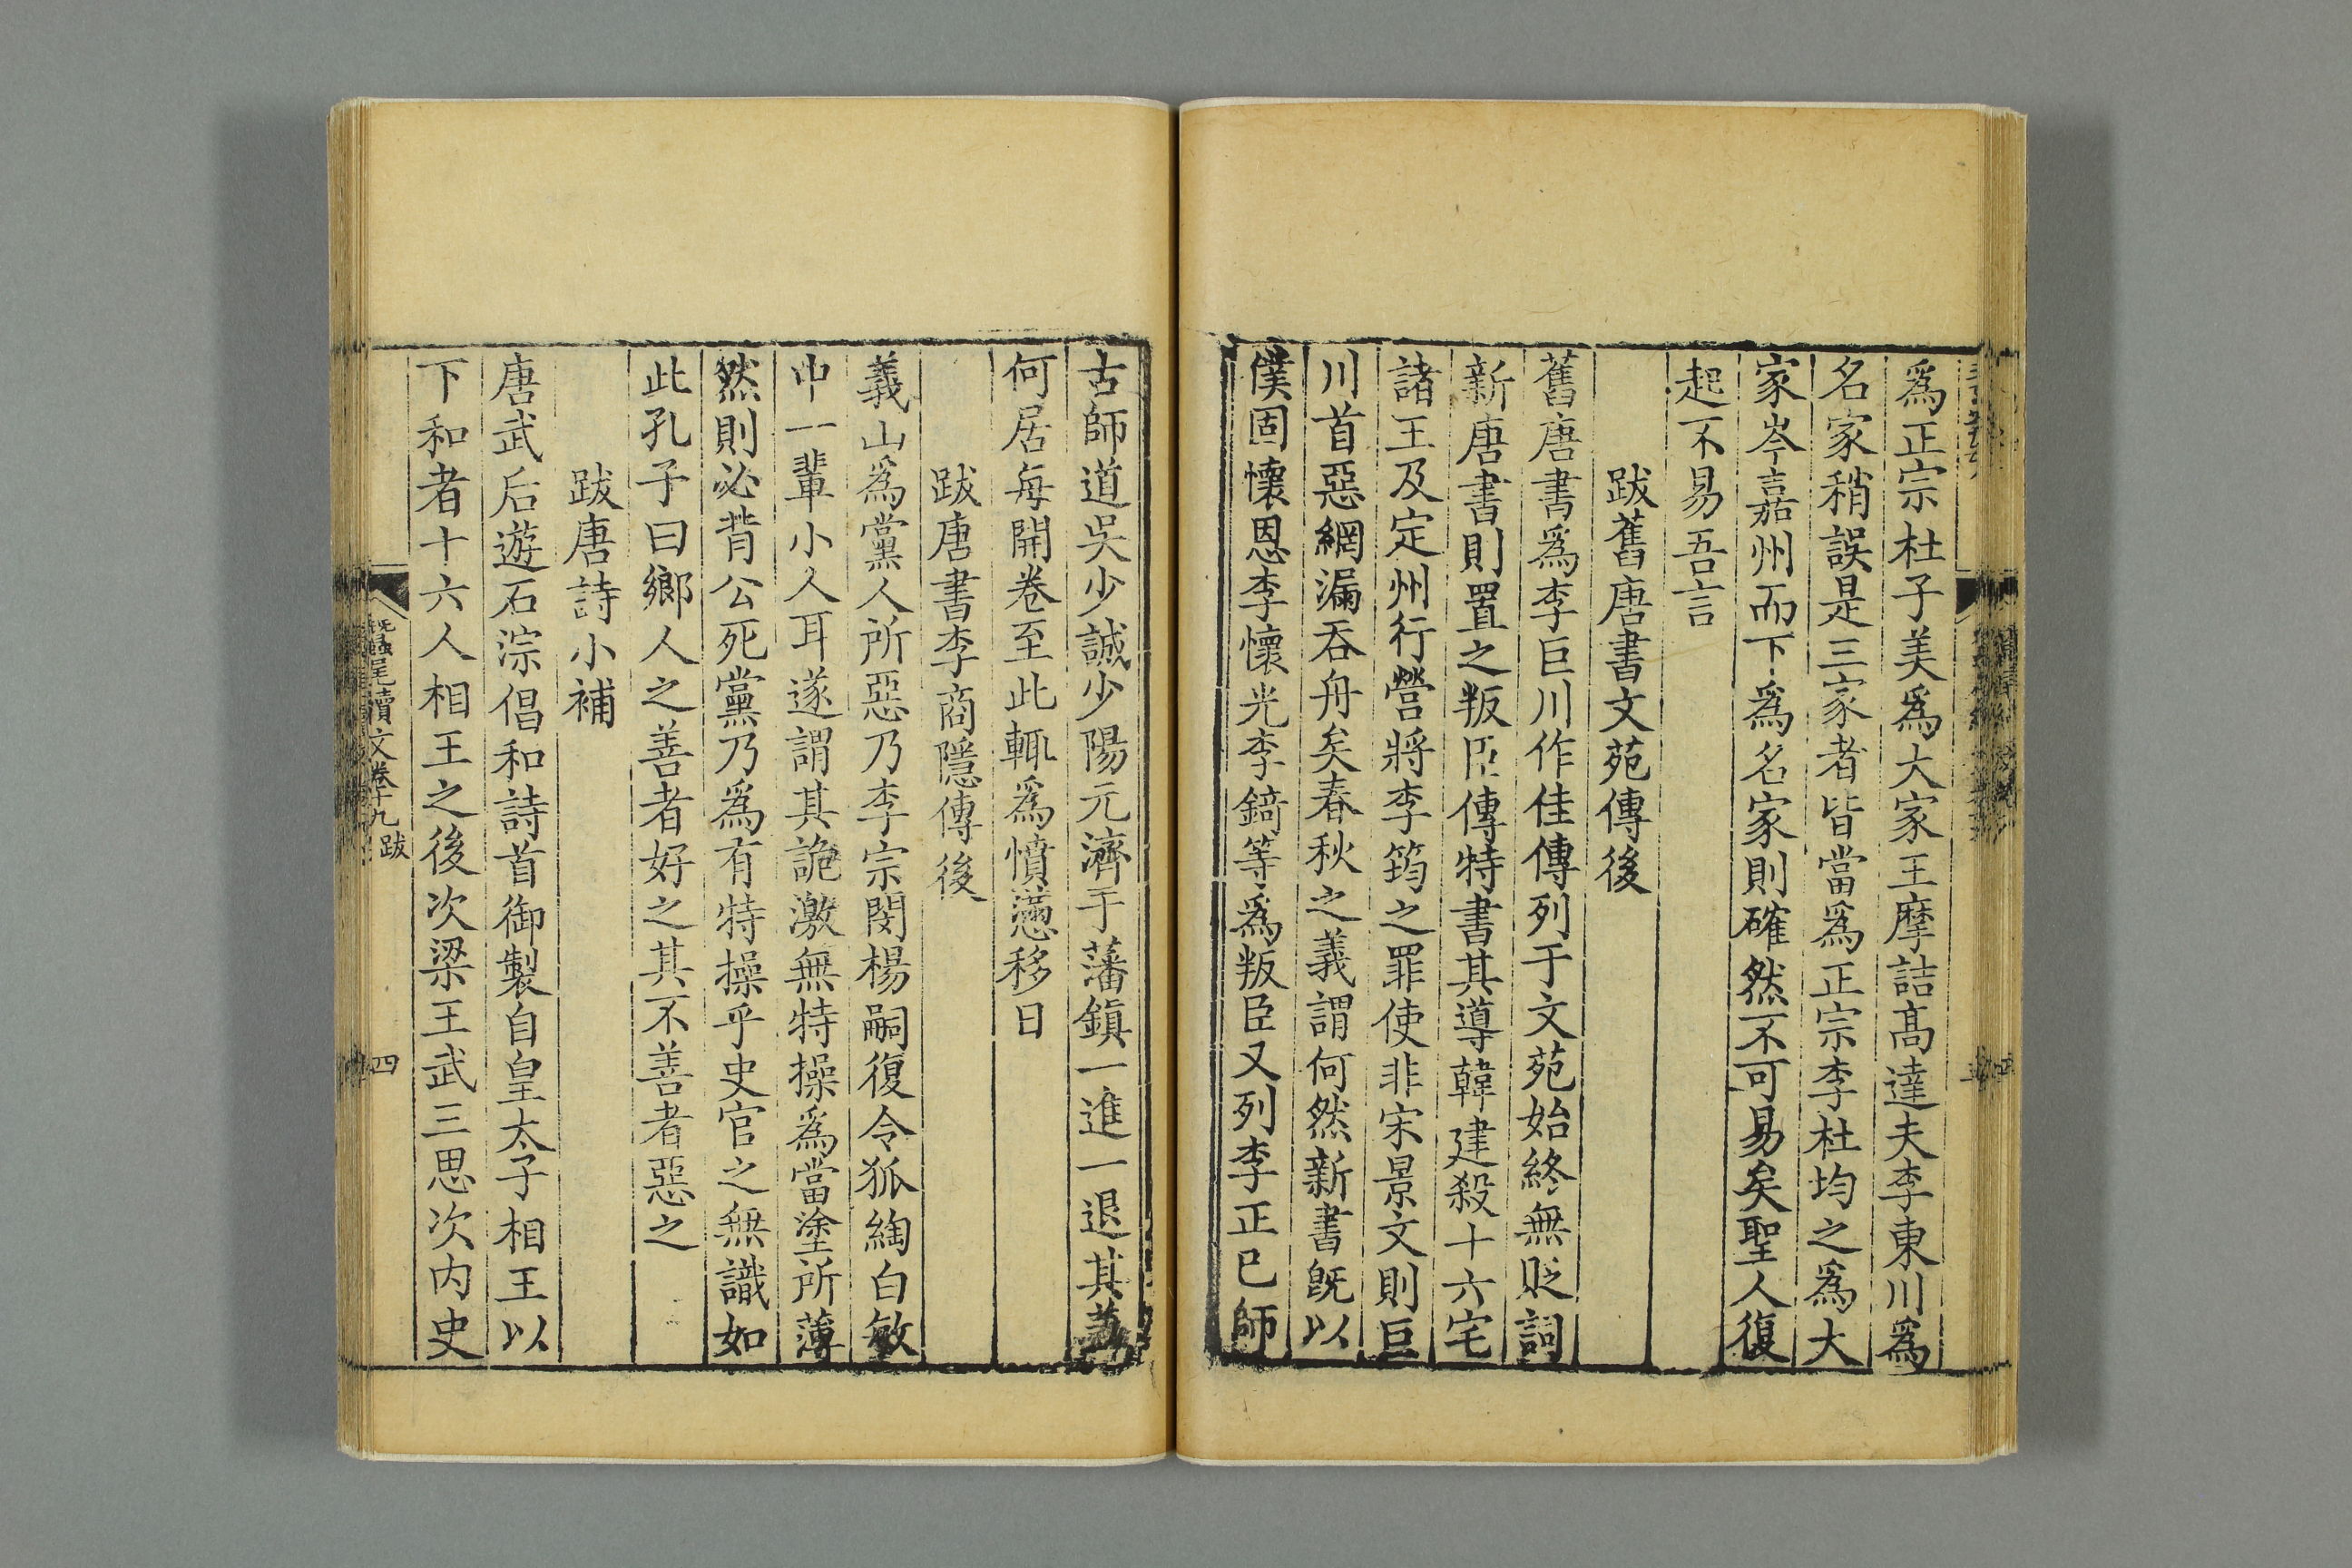 爲正宗杜子美爲大家王摩詰高達夫李東川爲
名家稍誤是三家者皆當爲正宗李杜均之爲大
家岑嘉州而下爲名家則確然不可易矣聖人復
起不易吾言
跋舊唐書文苑傳後
舊唐書爲李巨川作佳傳列于文苑始終無貶詞
新唐書則置之叛臣傳特書其導韓建殺十六宅
諸王及定州行營將李筠之罪使非宋景文則巨
川首惡網漏吞舟矣春秋之義謂何然新書旣以
僕固懷恩李懷光李錡等爲叛臣又列李正己師
古師道吳少誠少陽元濟于藩鎭一進一退其義
何居每開卷至此輒爲憤懣移日
跋唐書李商隱傳後
義山爲黨人所惡乃李宗閔楊嗣復令狐綯白敏
中一輩小人耳遂謂其詭激無特操爲當塗所薄
然則必背公死黨乃爲有特操乎史官之無識如
此孔子曰鄉人之善者好之其不善者惡之
跋唐詩小補
唐武后遊石淙倡和詩首御製自皇太子相王以
下和者十六人相王之後次梁王武三思次内史
蠶尾續文卷十九 跋
四